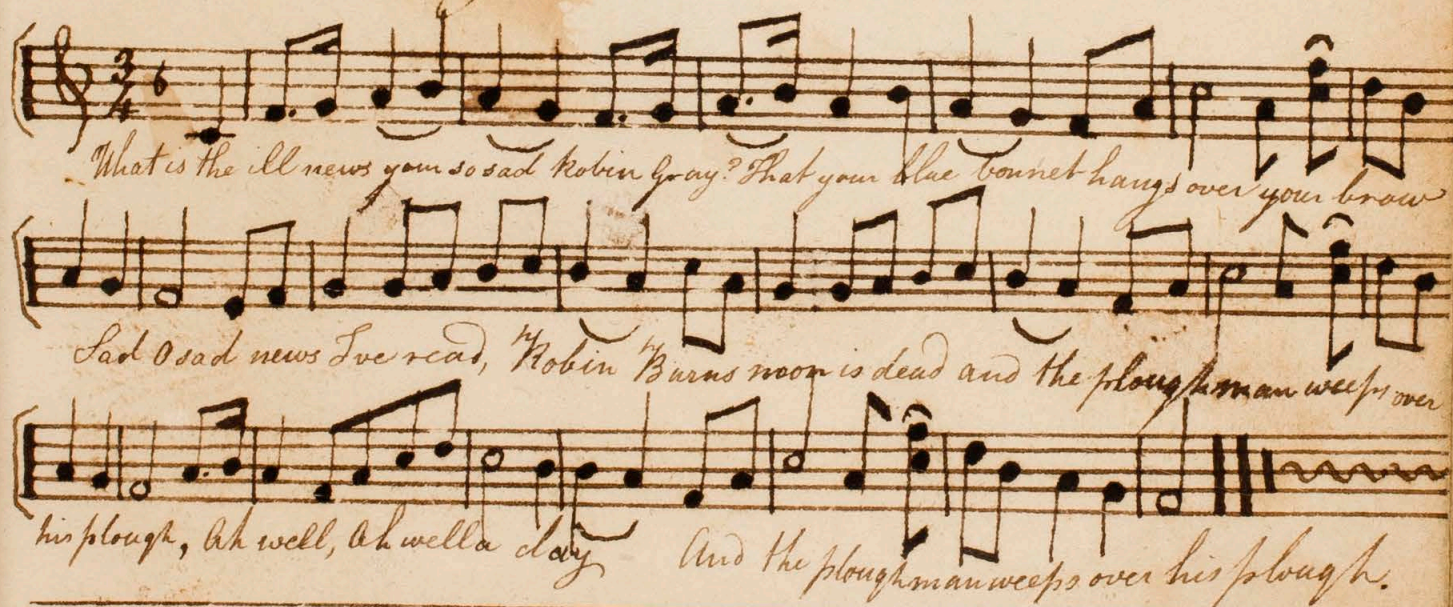 3/4
What is the ill news your so sad Robin Gray? That your blue bonnet hangs over your brow
Sad O sad news I've read, Robin Burns noon is dead and the ploughman weeps over
his plough, Ah well, Ah wella day And the ploughman weeps over his plough.